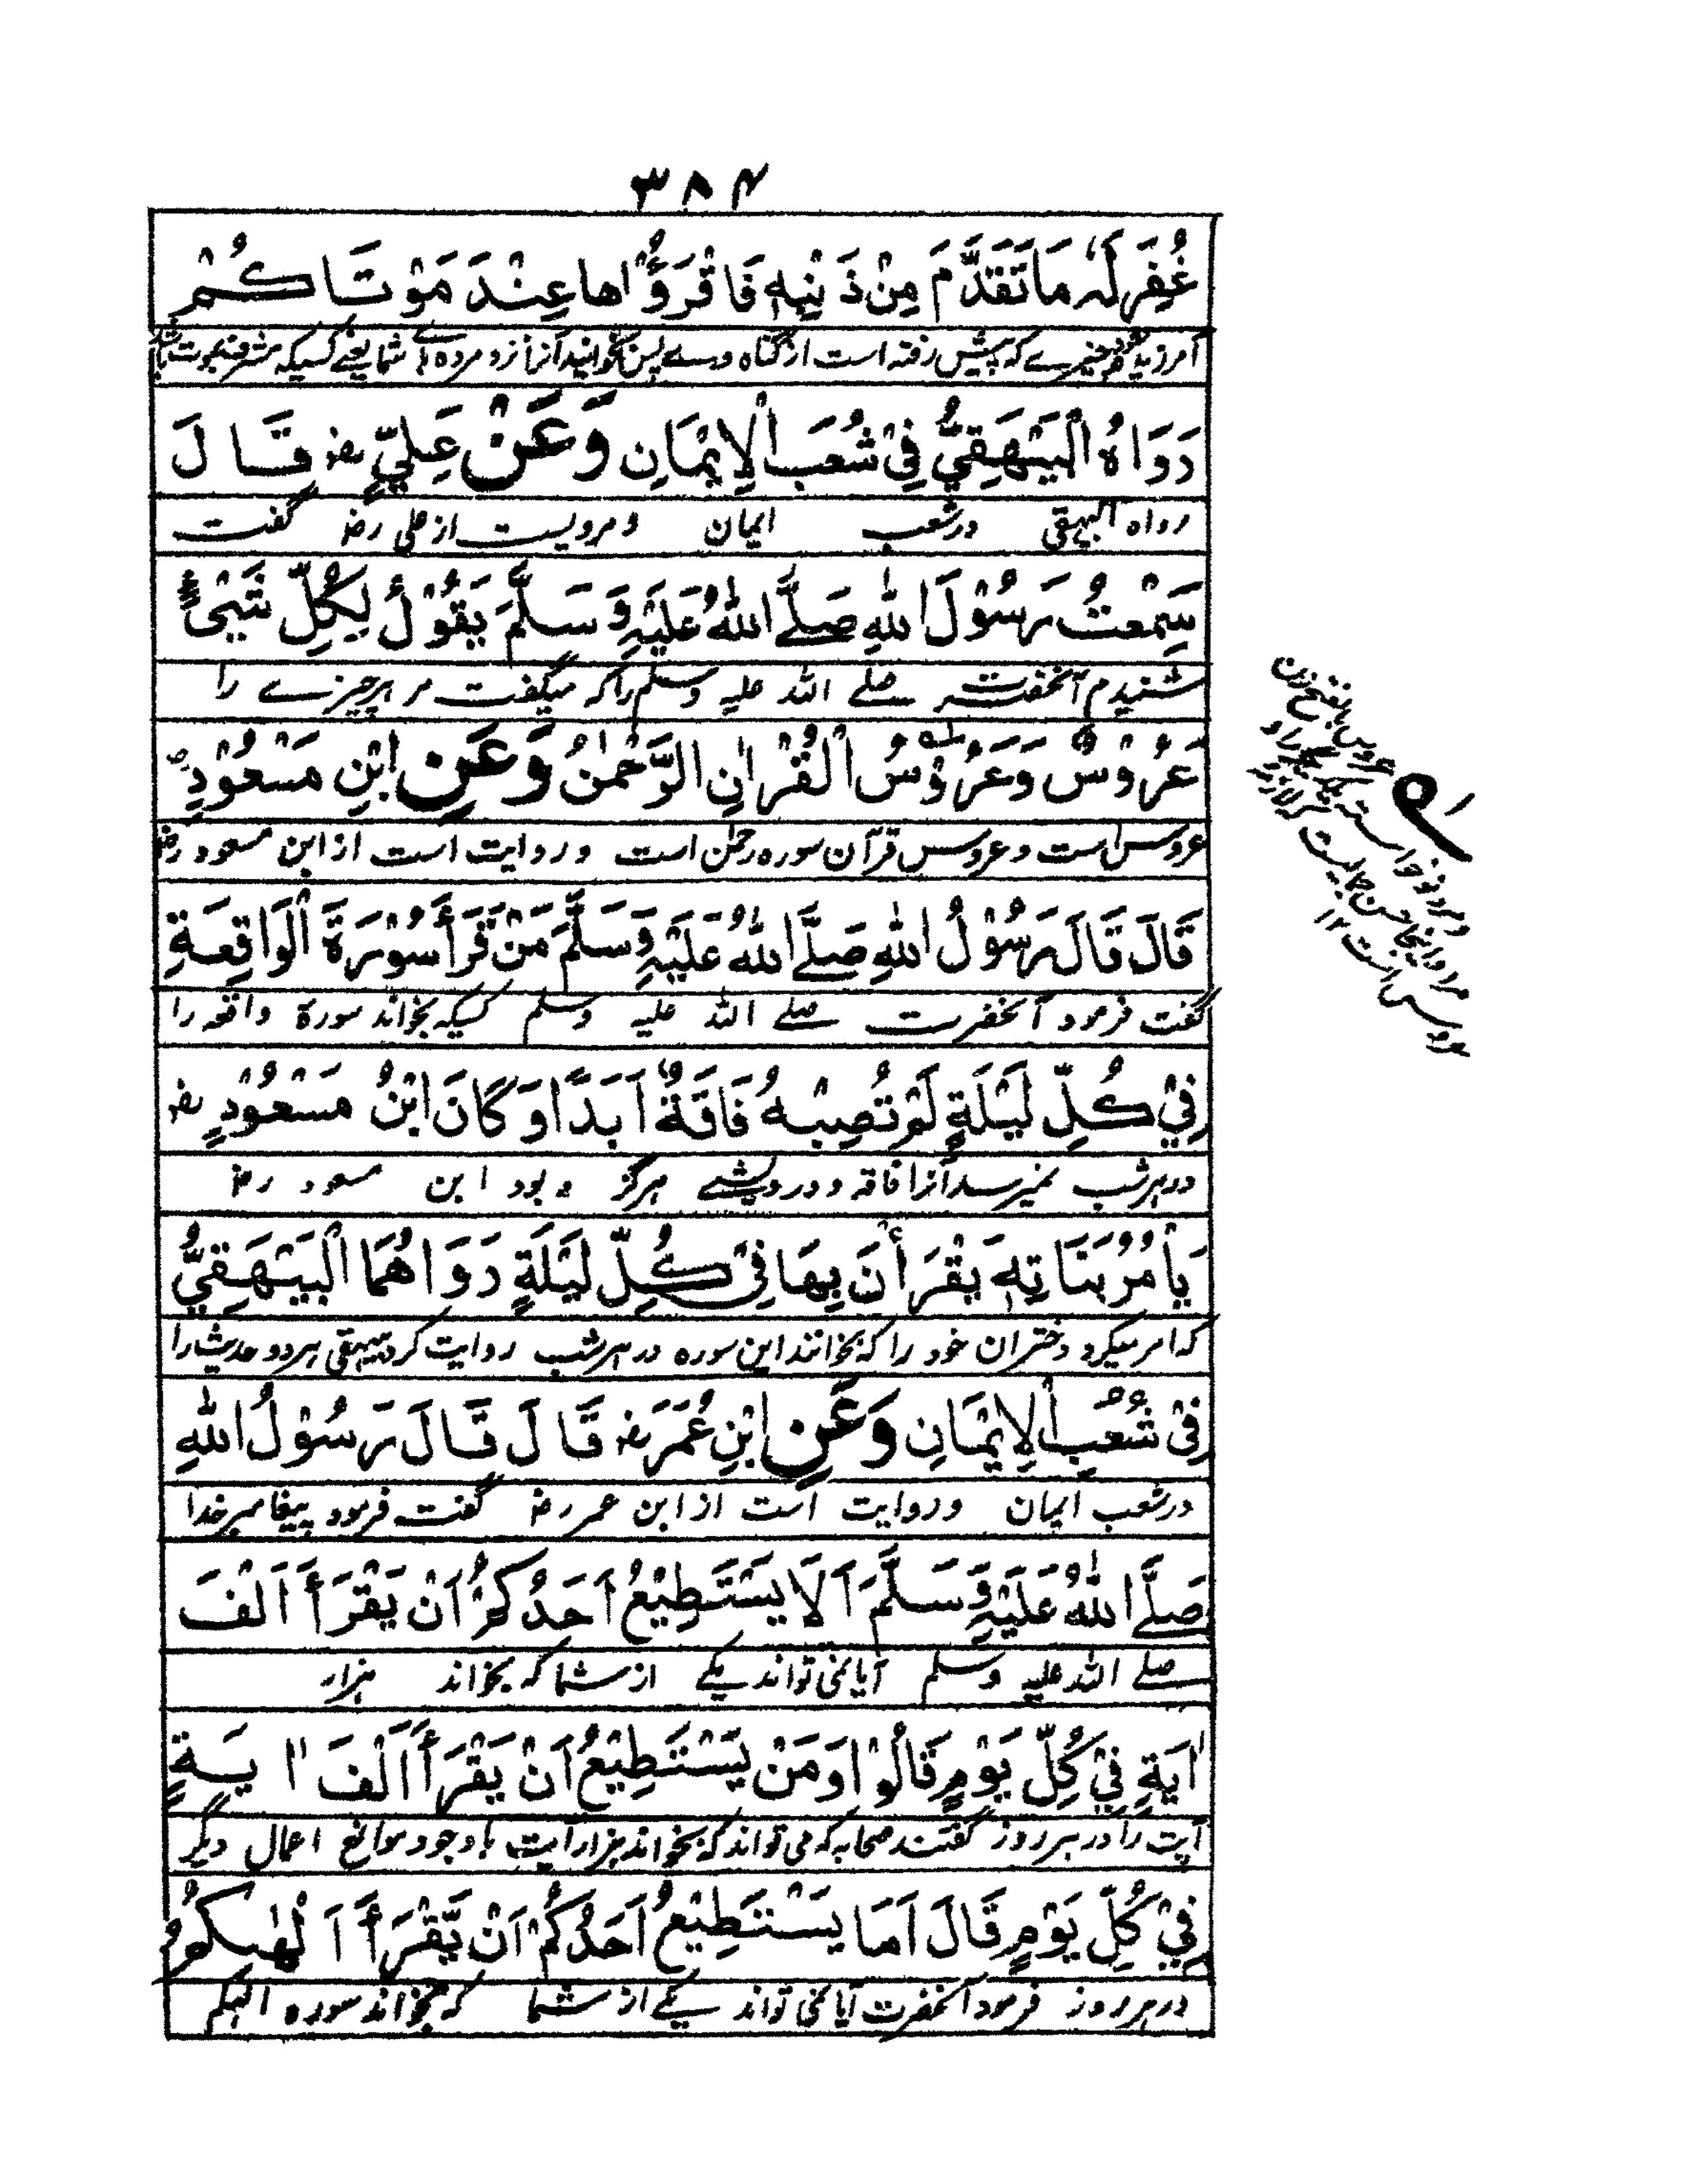 ۳۸۴
غُفِرَ لَهٗ مَا تَقَدَّمَ مِنْ ذَنْبِهٖ فَاقْرَءُوْاهَا عِنْدَ مَوْتَاكُمْ
آمرزیده شود چیزے که پیش رفته است از گناه وے پس بخوانید آنرا نزد مرده شما یعنے کسیکه مشرف بموت باشد
رَوَاهُ الْبَيْهَقِيُّ فِيْ شُعَبِ الْاِيْمَانِ وَعَنْ عَلِيٍّ رض قَالَ
رواه البیهقی در شعب ایمان و مرویست از علی رض گفت
سَمِعْتُ رَسُوْلَ اللّٰهِ صَلَّے اللّٰهُ عَلَيْهِ وَسَلَّمَ يَقُوْلُ لِكُلِّ شَيْئٍ
شنیدم آنحضرت صلے الله علیه وسلم را که میگفت مر هر چیزے را
عَرُوْسٌ وَعَرُوْسُ الْقُرْاٰنِ الرَّحْمٰنُ وَعَنِ ابْنِ مَسْعُوْدٍ رض
عروس است و عروس قرآن سوره رحمٰن است و روایت است از ابن مسعود رض
قَالَ قَالَ رَسُوْلُ اللّٰهِ صَلَّے اللّٰهُ عَلَيْهِ وَسَلَّمَ مَنْ قَرَأَ سُوْرَةَ الْوَاقِعَةِ
گفت فرمود آنحضرت صلے الله علیه وسلم کسیکه بخواند سورة واقعه را
فِيْ كُلِّ لَيْلَةٍ لَمْ تُصِبْهُ فَاقَةٌ اَبَدًا وَكَانَ ابْنُ مَسْعُوْدٍ رض
در هر شب نمیرسد آنرا فاقه و درویشے هرگز و بود ابن مسعود رض
يَأْمُرُ بَنَاتِهٖ يَقْرَأْنَ بِهَا فِيْ كُلِّ لَيْلَةٍ رَوَاهُمَا الْبَيْهَقِيُّ
که امر میکرد دختران خود را که بخوانند این سوره در هر شب روایت کرد بیهقی هر دو حدیث را
فِيْ شُعَبِ الْاِيْمَانِ وَعَنِ ابْنِ عُمَرَ رض قَالَ قَالَ رَسُوْلُ اللّٰهِ
در شعب ایمان و روایت است از ابن عمر رض گفت فرمود پیغامبر خدا
صَلَّے اللّٰهُ عَلَيْهِ وَسَلَّمَ اَلَا يَسْتَطِيْعُ اَحَدُكُمْ اَنْ يَقْرَأَ اَلْفَ
صلے الله علیه وسلم آیا نمی تواند یکے از شما که بخواند هزار
اٰيَةٍ فِيْ كُلِّ يَوْمٍ قَالُوْا وَمَنْ يَسْتَطِيْعُ اَنْ يَقْرَأَ اَلْفَ اٰيَةٍ
آیت را در هر روز گفتند صحابه که می تواند که بخواند هزار آیت با وجود موانع اعمال دیگر
فِيْ كُلِّ يَوْمٍ قَالَ اَمَا يَسْتَطِيْعُ اَحَدُكُمْ اَنْ يَّقْرَأَ اَلْهٰىكُمُ
در هر روز فرمود آنحضرت آیا نمی تواند یکے از شما که بخواند سوره الهکم
عروس بالفتح زن
و مرد نو خواسته
مراد اینجا حسن